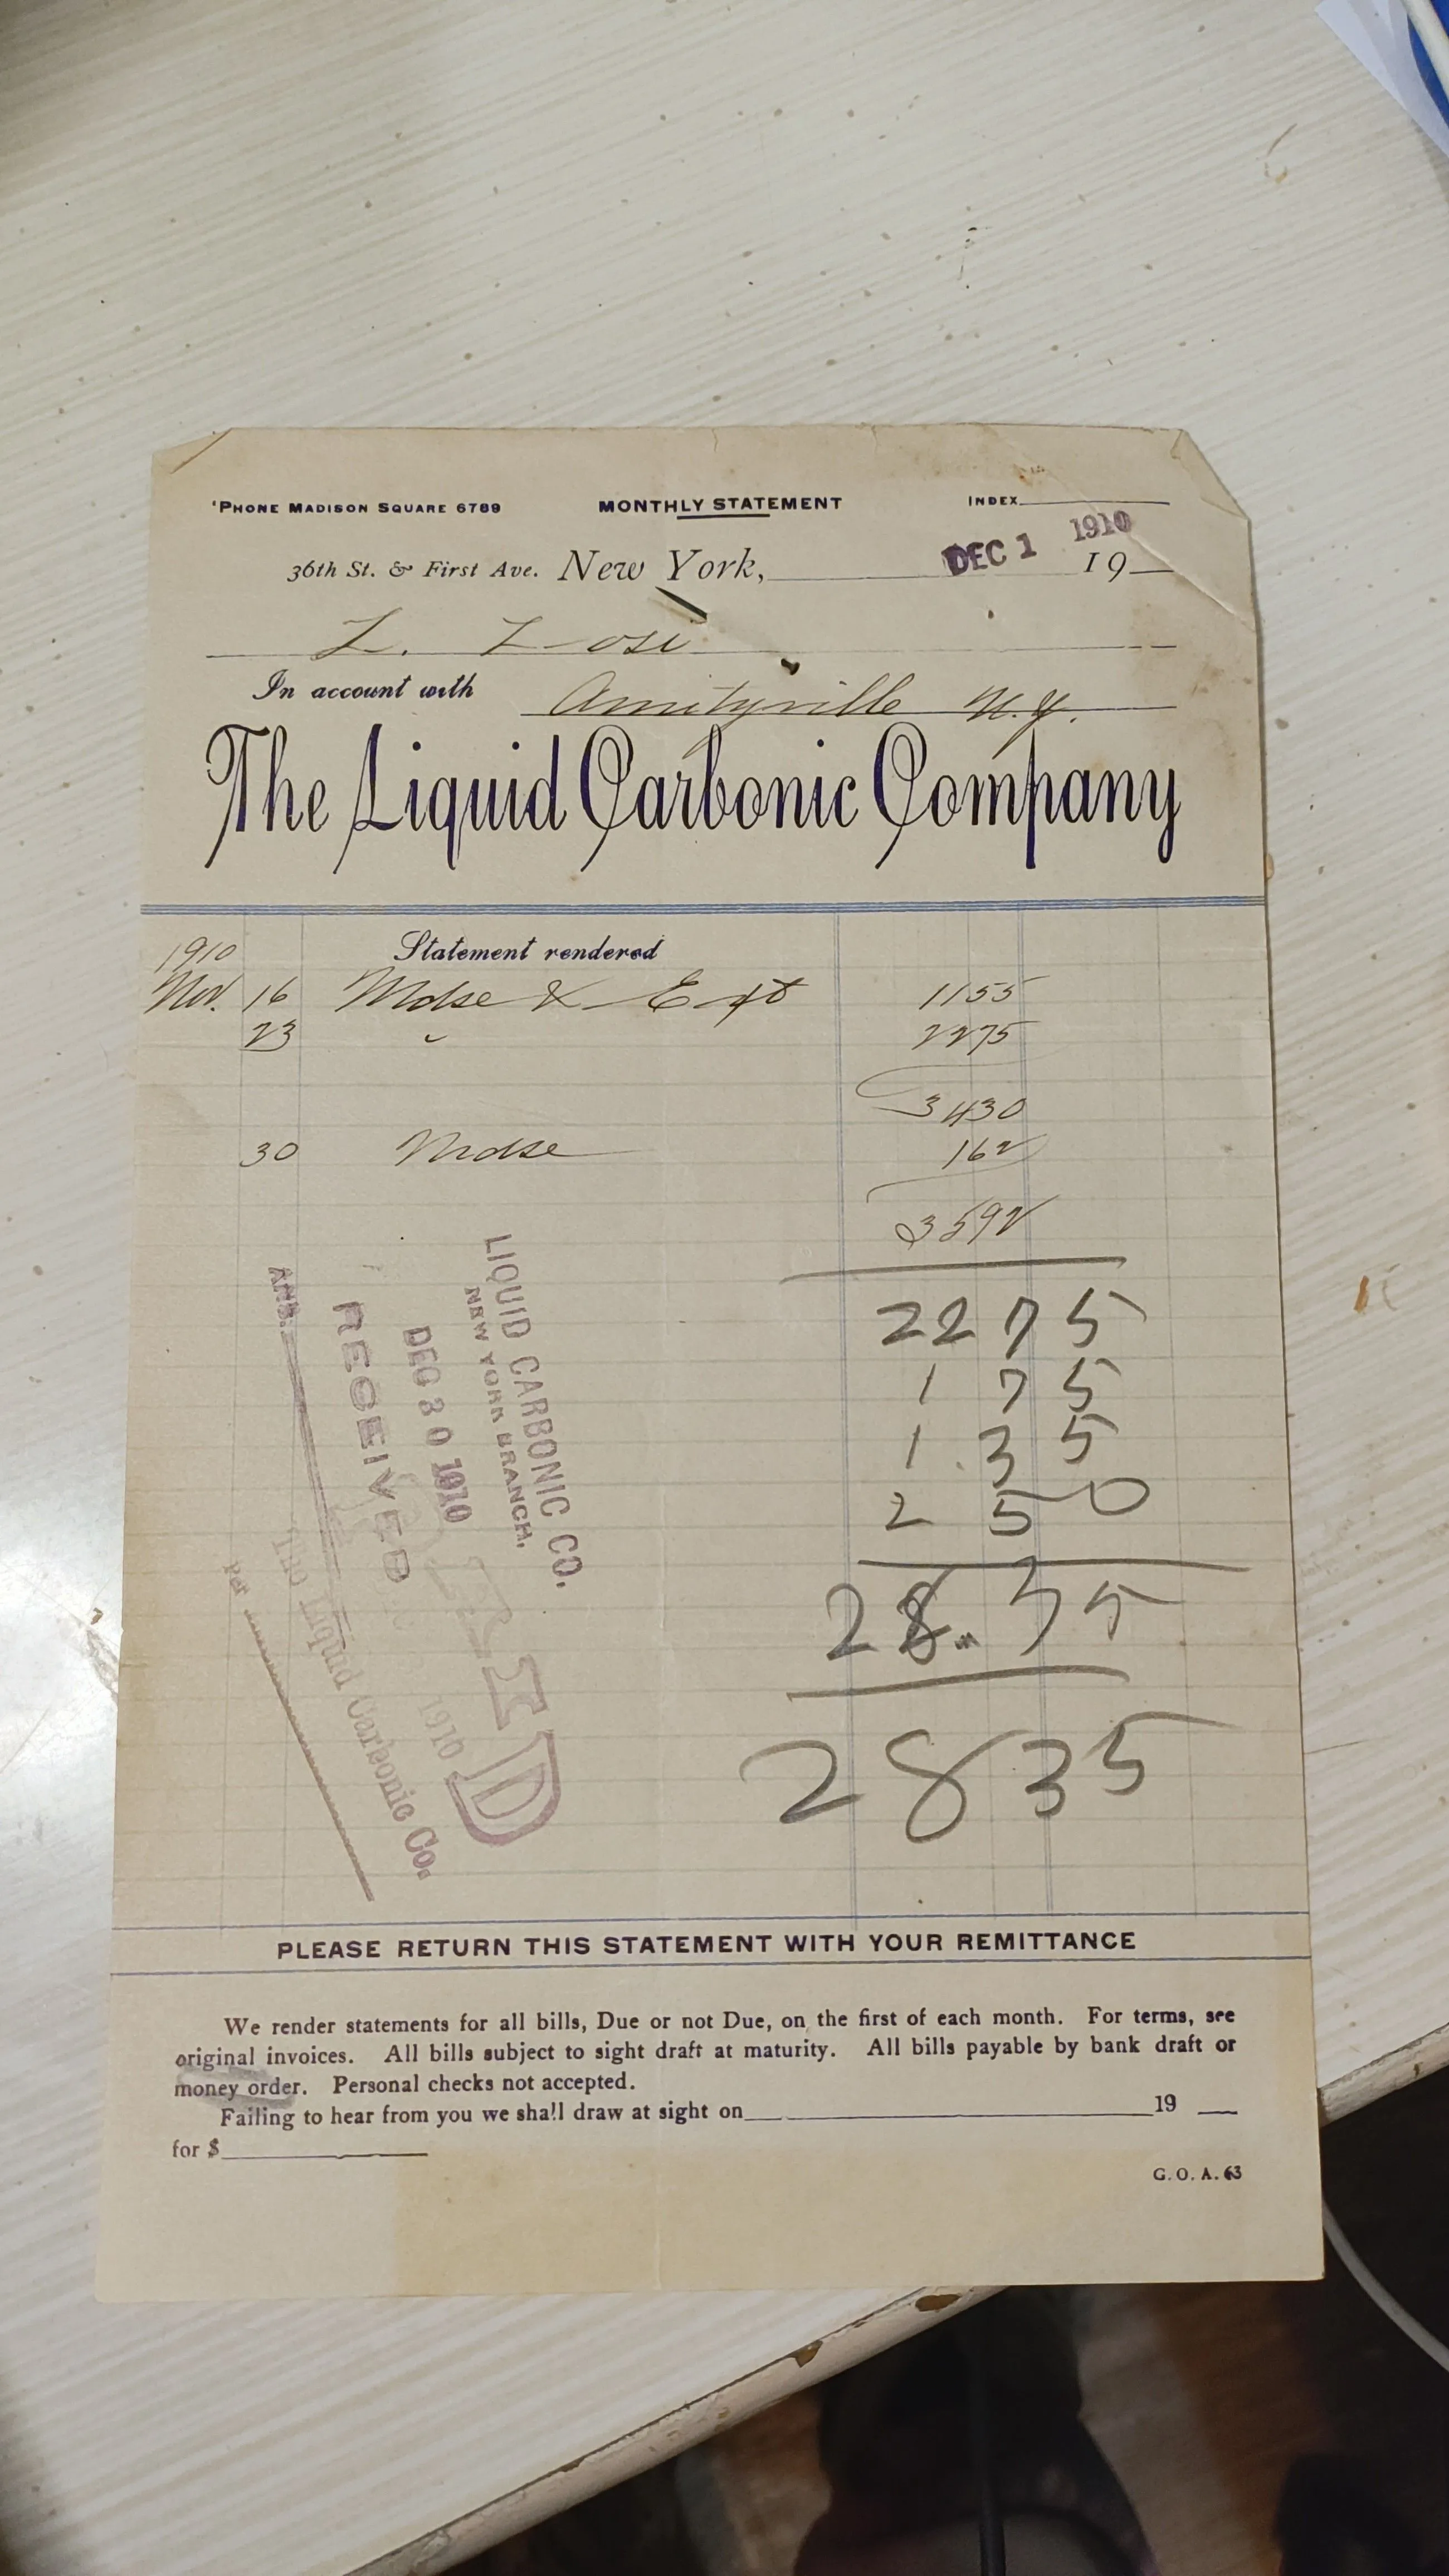 'PHONE MADISON SQUARE 6789 MONTHLY STATEMENT INDEX
DEC 1 1910
36th St. & First Ave. New York, 19
L. Losi
In account with Amityville N.Y.
The Liquid Carbonic Company
1910 Statement rendered
Nov. 16 Mdse & Ext 1155
23 " 2275
3430
30 Mdse 162
3592
2275
1 75
1.35
2 50
28.35
2835
LIQUID CARBONIC CO.
NEW YORK BRANCH.
DEC 30 1910
RECEIVED
ANS.
PAID
1910
The Liquid Carbonic Co.
per
PLEASE RETURN THIS STATEMENT WITH YOUR REMITTANCE
We render statements for all bills, Due or not Due, on the first of each month. For terms, see
original invoices. All bills subject to sight draft at maturity. All bills payable by bank draft or
money order. Personal checks not accepted.
Failing to hear from you we shall draw at sight on 19
for $
G. O. A. 63